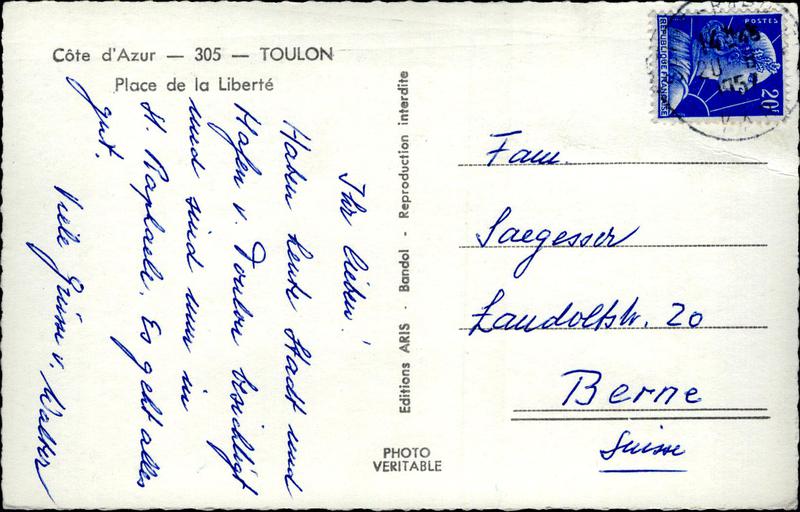 Côte d'Azur — 305 — TOULON
Place de la Liberté
Ihr lieben!
Haben heute Stadt und
Hafen v. Toulon besichtigt
und sind nun in
St. Raphaele. Es geht alles
gut.
Viele Grüsse v. Walter
Editions ARIS - Bandol - Reproduction interdite
PHOTO
VERITABLE
POSTES
REPUBLIQUE FRANÇAISE
20F
Fam.
Saegesser
Landoltstr. 20
Berne
Suisse